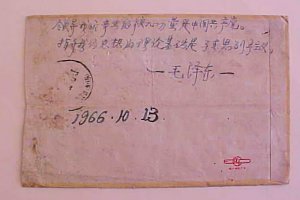 领导我们事业的核心力量是中国共产党。
指导我们思想的理论基础是马克思列宁主义
—毛泽东—
1966.10.13